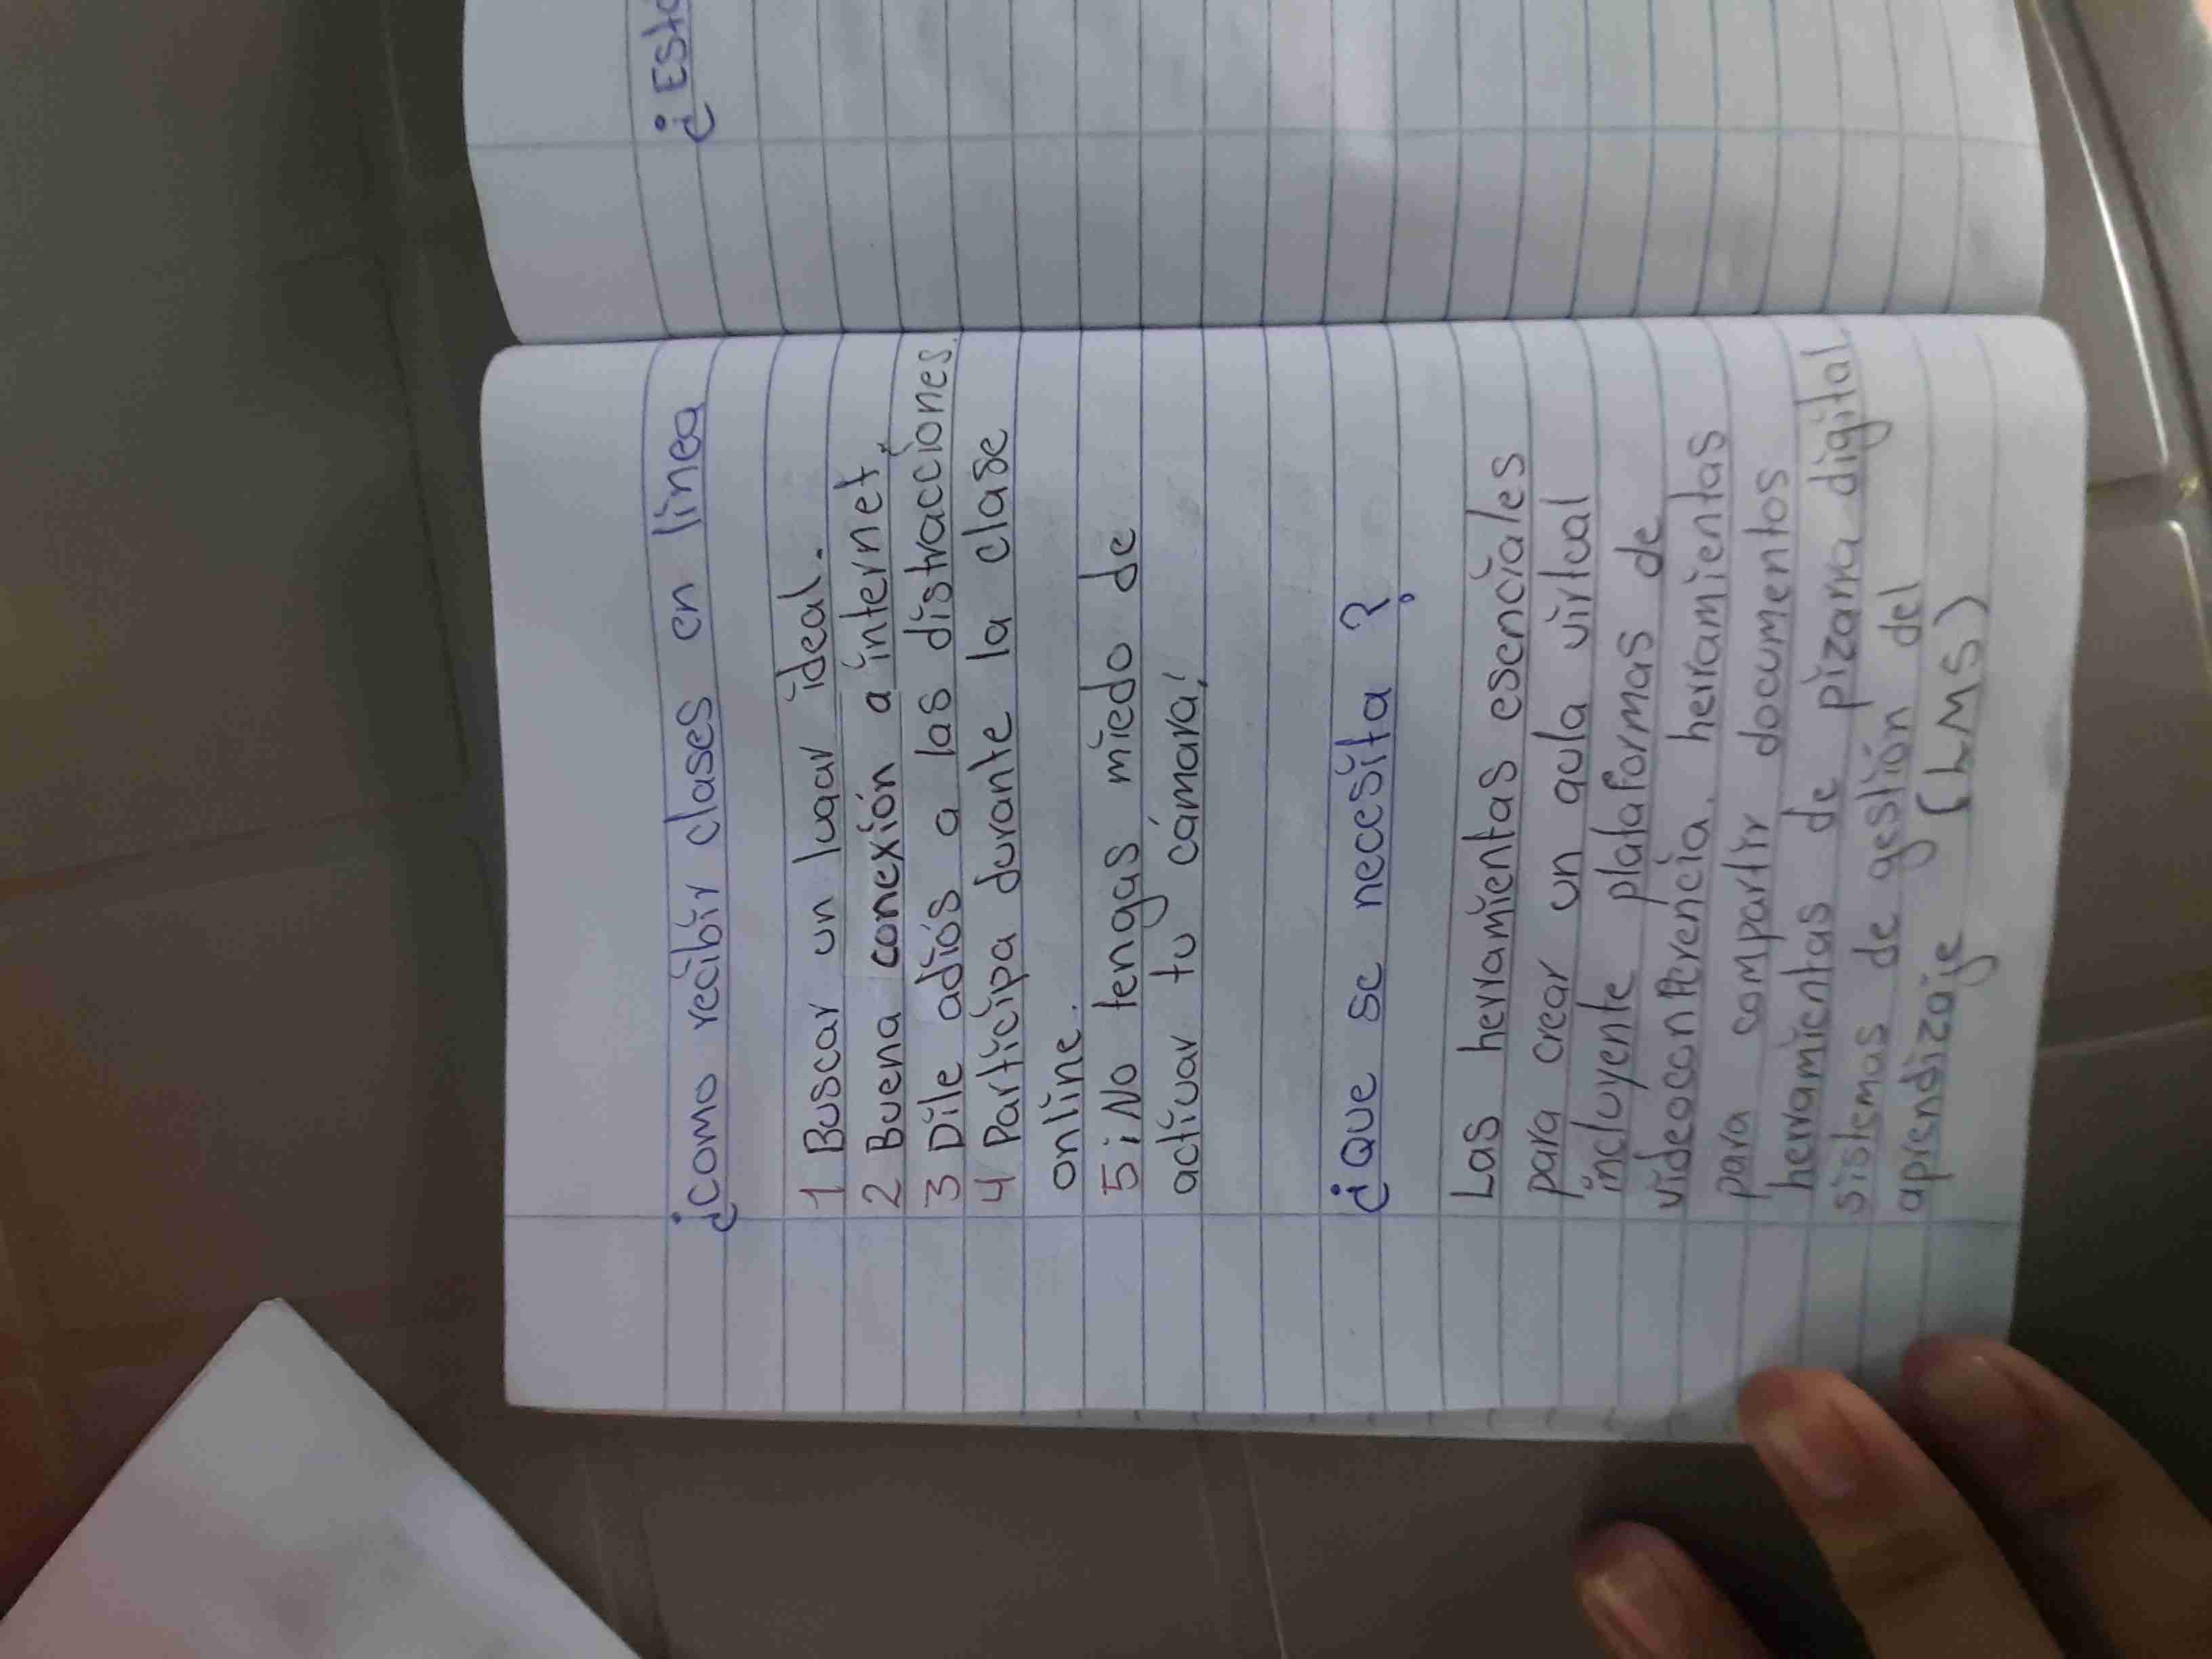 ¿como recibir clases en línea
1 Buscar un lugar ideal.
2 Buena conexión a internet.
3 Dile adiós a las distracciones.
4 Participa durante la clase
online.
5 ¡No tengas miedo de
activar tu cámara!
¿Que se necesita?
Las herramientas esenciales
para crear un aula virtual
incluyente plataformas de
videoconferencia, herramientas
para compartir documentos
herramientas de pizarra digital
sistemas de gestión del
aprendizaje (LMS)